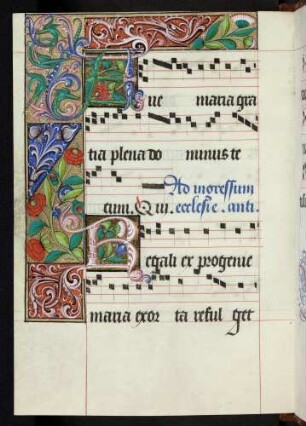 Aue maria gra
tia plena do minus te
Ad ingressum
cum. Qui. ecclesie. anti.
Regali ex progenie
maria exor ta reful get